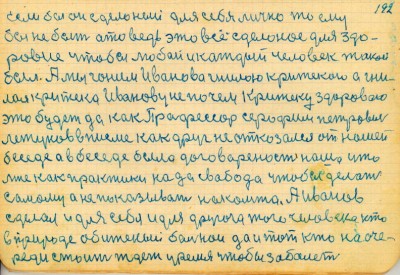 192
сем был он сделоный для себя лично то ему
бы не был а то ведь это всё сделоное для здо-
ровие чтобы любай и каждый человек такой
был. А мы гоним Иванова гнилою критекою а гни-
лая критека Иванову не по чем Критеку здороваю
это будет да как Прафессор серафим петрович
летунов в писме как друг не отказался от нашей
беседе а в беседе была договареность наша что
мне как практику нада свабода чтобы делать
самому а не показывать на комто. А иванов
сделал и для себя и для другога того человека кто
в природе обиженый бальной да и тот кто на оче-
реди стоит ждет уремя чтобы забалеть